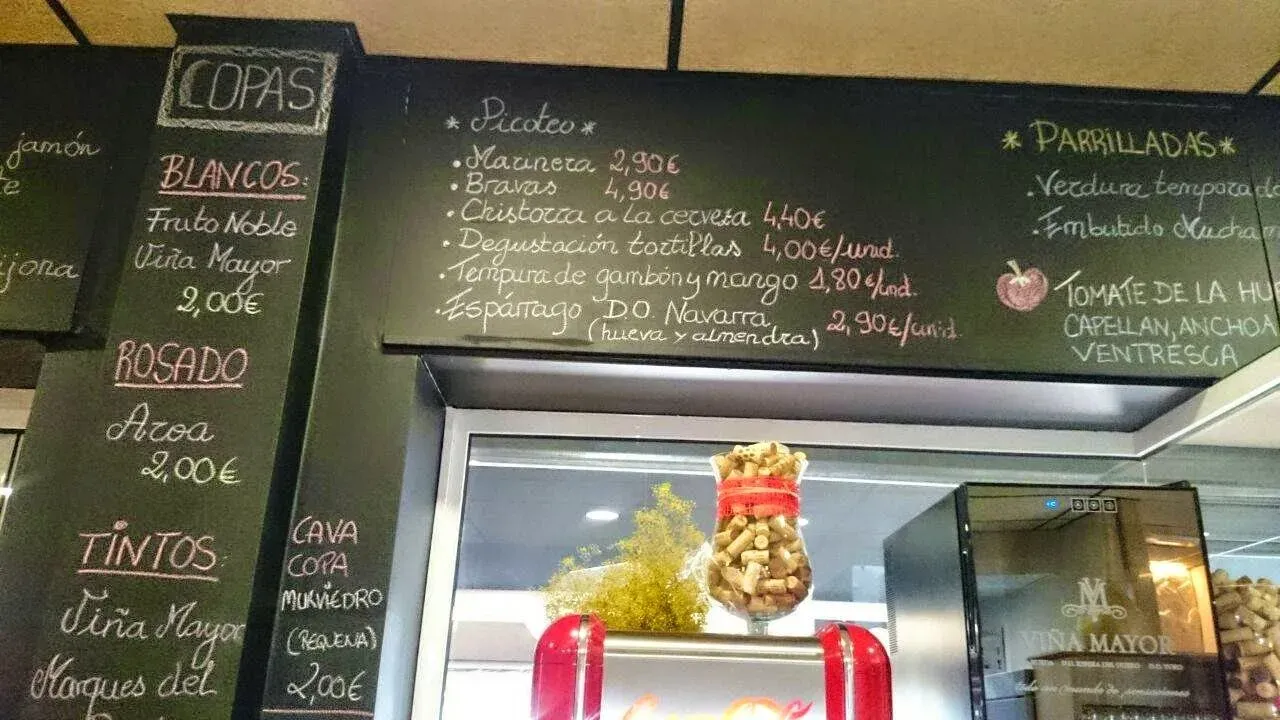 jamón
COPAS
BLANCOS:
Fruto Noble
Viña Mayor
2,00€
ROSADO
Aroa
2,00€
TINTOS:
Viña Mayor
Marques del
CAVA
COPA
MURVIEDRO
(REQUENA)
2,00€
* Picoteo *
• Marinera 2,90€
• Bravas 4,90€
• Chistorra a la cerveza 4,40€
• Degustación tortillas 4,00€/unid.
• Tempura de gambón y mango 1,80€/und.
• Espárrago D.O. Navarra 2,90€/unid.
(hueva y almendra)
* PARRILLADAS *
• Verdura temporad
• Embutido
TOMATE DE LA HU
CAPELLAN, ANCHOA
VENTRESCA
VM
VIÑA MAYOR